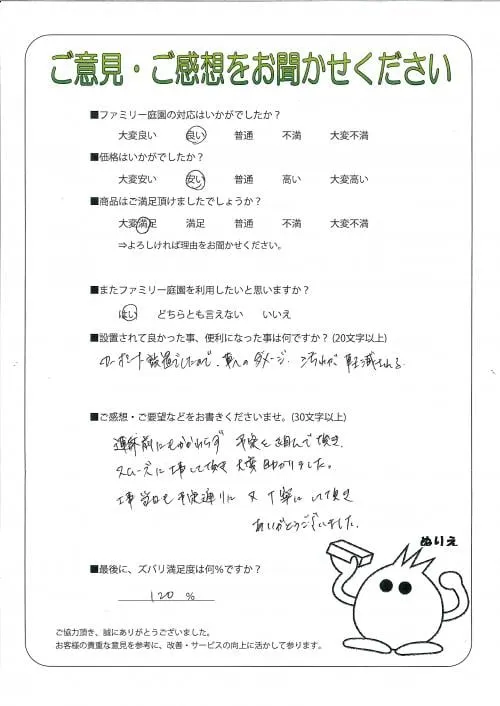 ご意見・ご感想をお聞かせください
■ファミリー庭園の対応はいかがでしたか？
大変良い 良い 普通 不満 大変不満
■価格はいかがでしたか？
大変安い 安い 普通 高い 大変高い
■商品はご満足頂けましたでしょうか？
大変満足 満足 普通 不満 大変不満
⇒よろしければ理由をお聞かせください。
■またファミリー庭園を利用したいと思いますか？
はい どちらとも言えない いいえ
■設置されて良かった事、便利になった事は何ですか？(20文字以上)
カーポート設置でしたので、車へのダメージ、汚れが軽減される
■ご感想・ご要望などをお書きくださいませ。(30文字以上)
連休前にもかかわらず 予定を組んで頂き
スムーズに工事して頂き 大変助かりました。
工事当日も予定通りに 又 丁寧にして頂き
ありがとうございました。
ぬりえ
■最後に、ズバリ満足度は何％ですか？
120 %
ご協力頂き、誠にありがとうございました。
お客様の貴重な意見を参考に、改善・サービスの向上に活かして参ります。